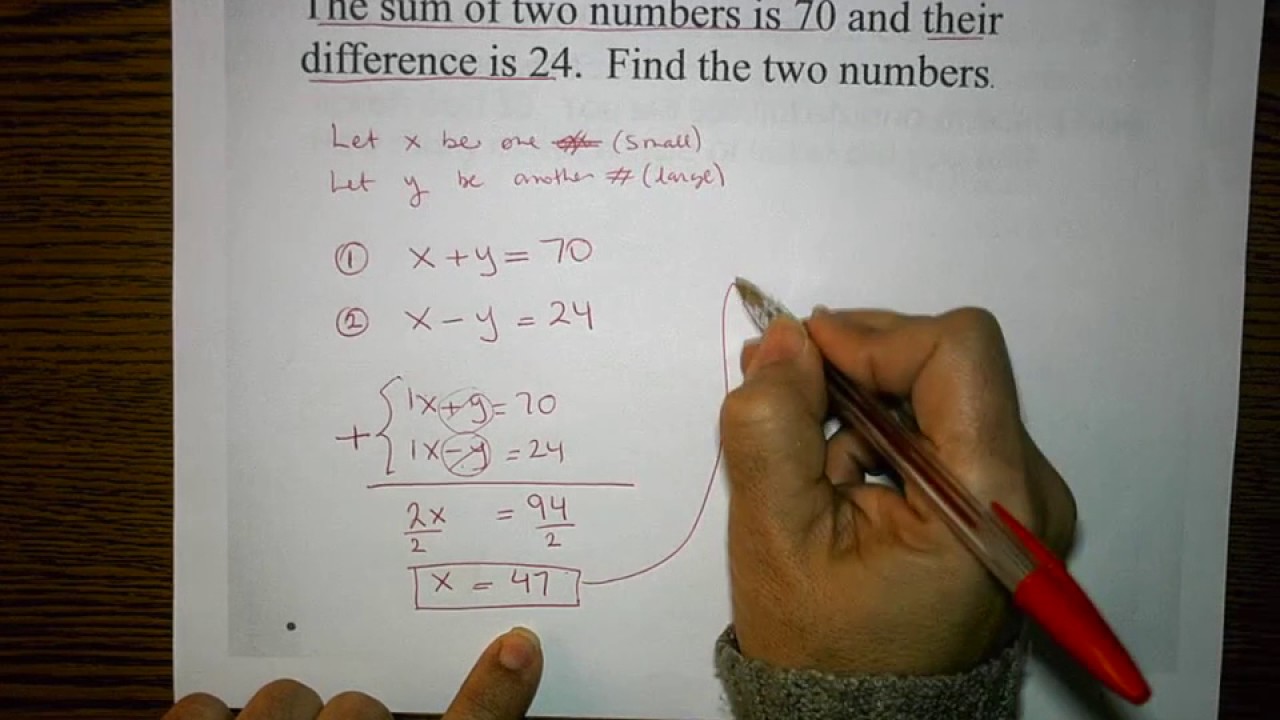 The sum of two numbers is 70 and their
difference is 24. Find the two numbers.
Let x be one (small)
Let y be another # (large)
① x + y = 70
② x - y = 24
1x + y = 70
+ { 1x - y = 24
2x/2 = 94/2
x = 47